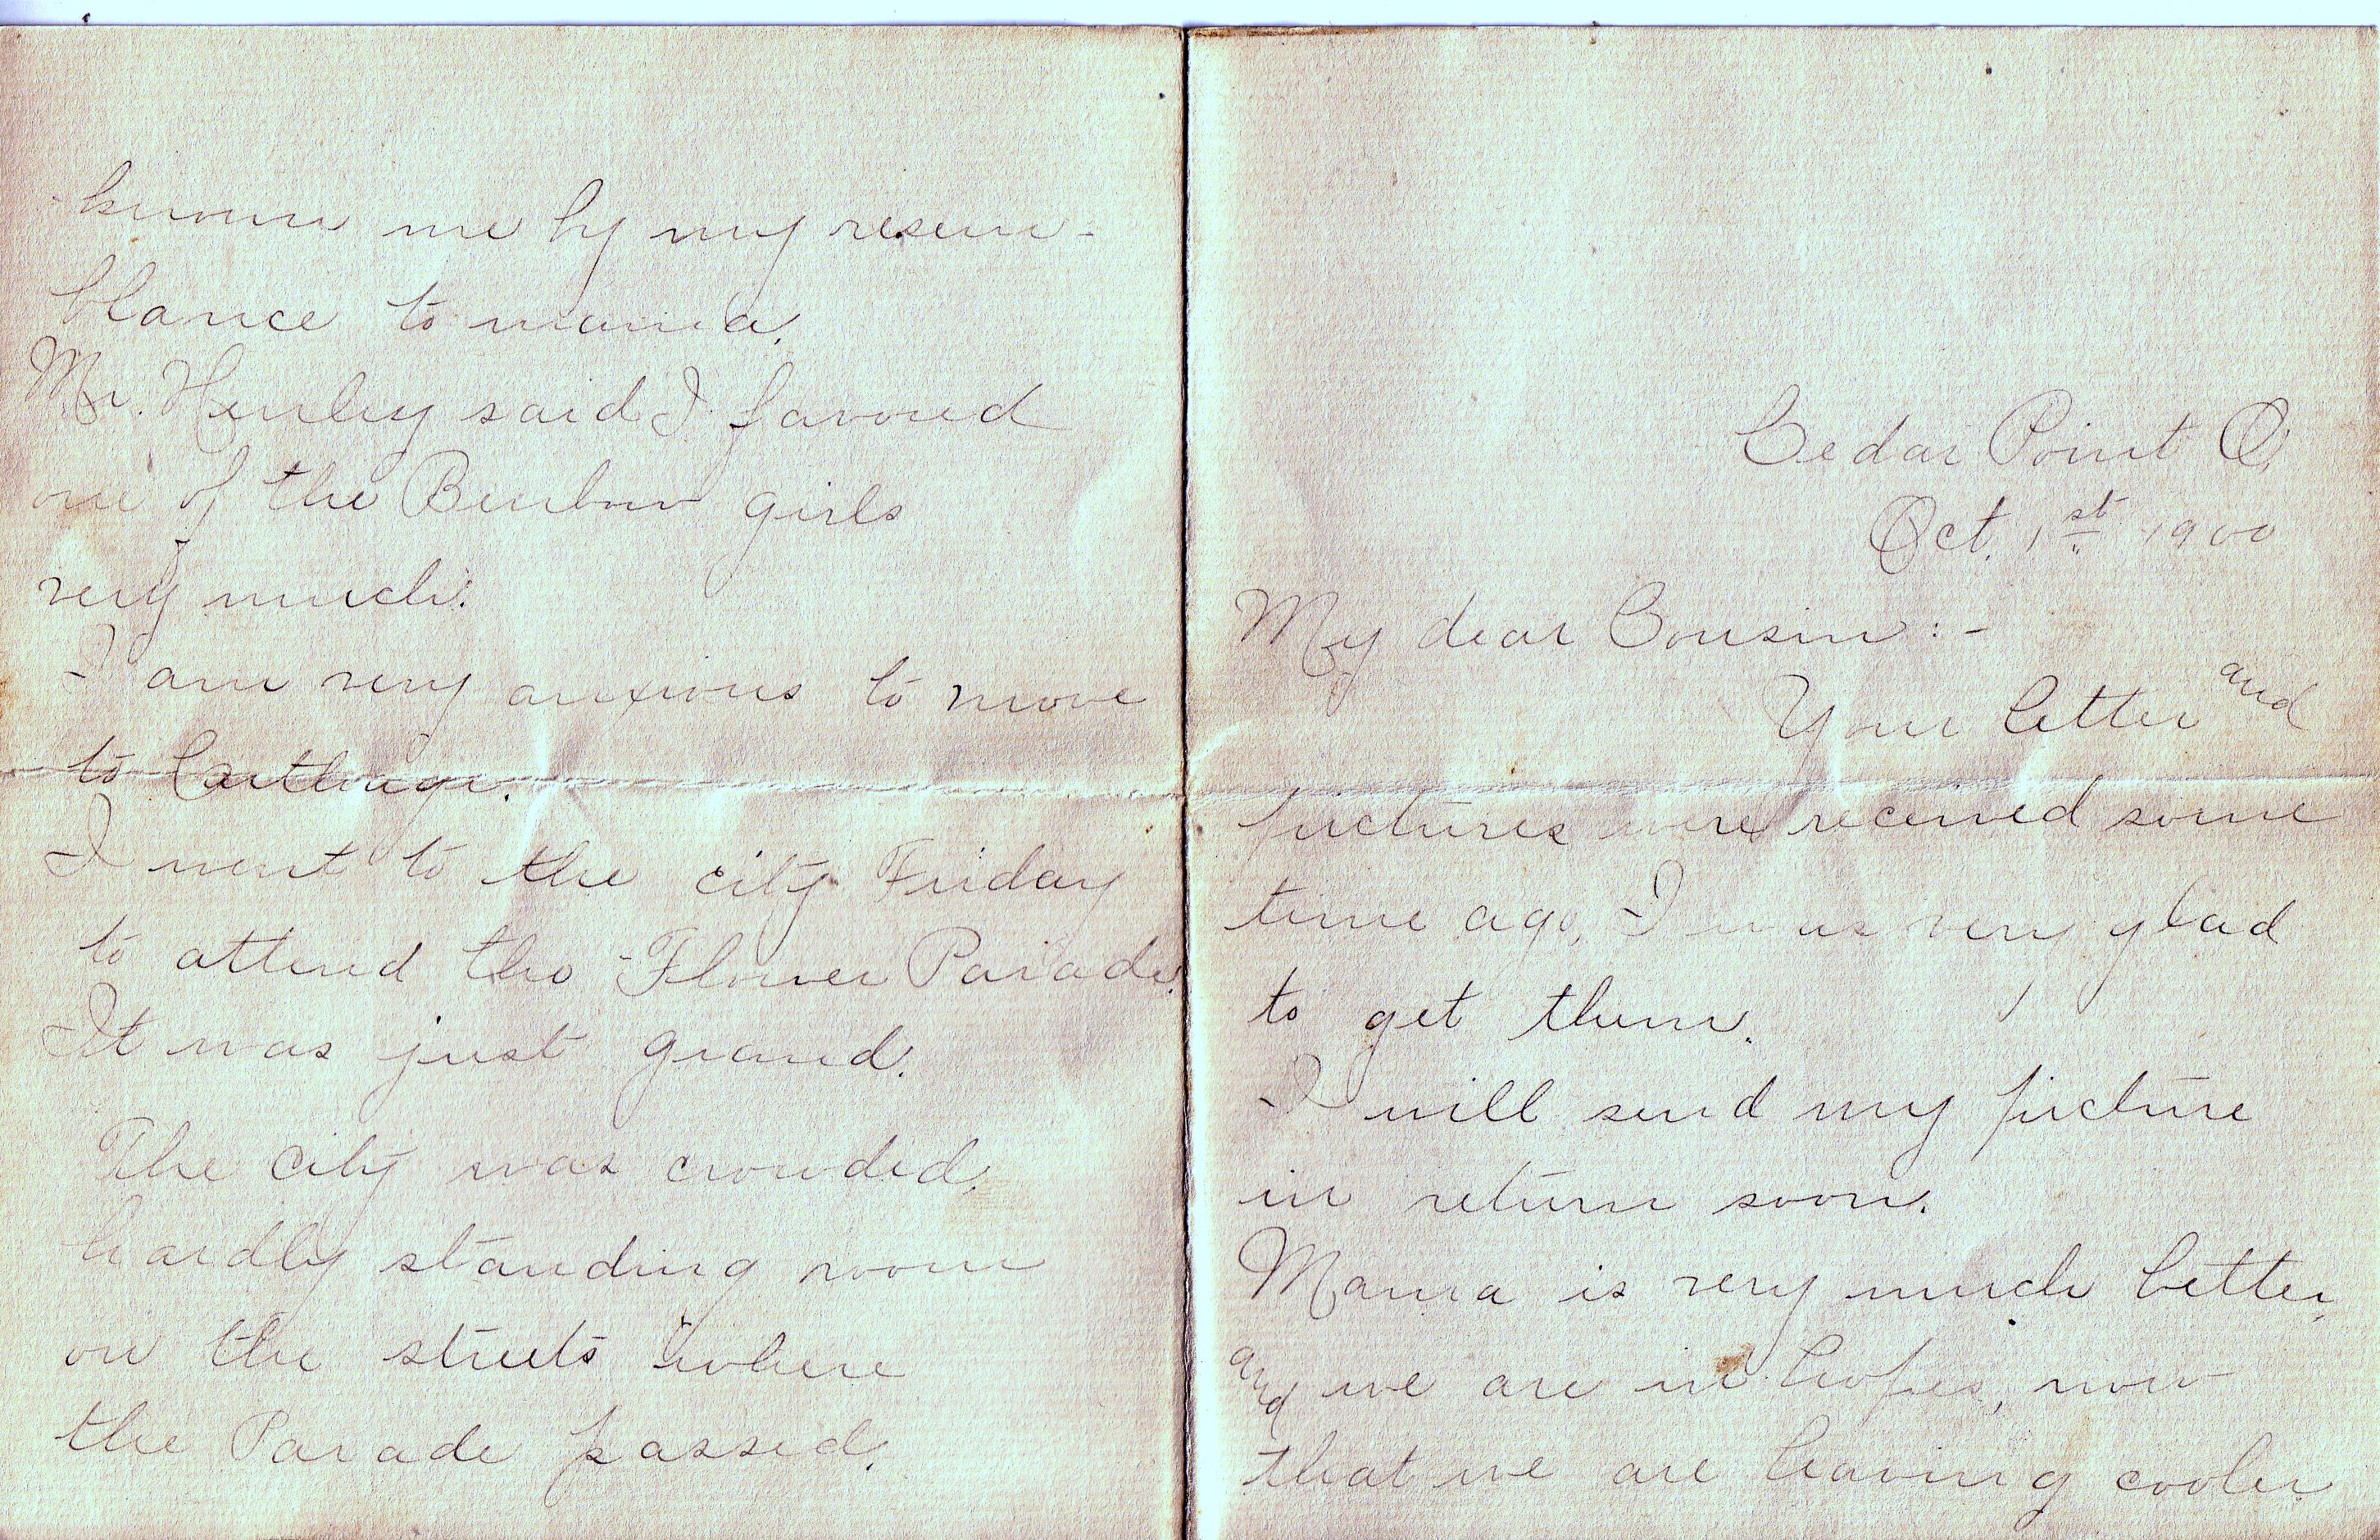 Cedar Point O.
Oct. 1st 1900
My dear Cousin:-
Your letter and
pictures were received some
time ago, I was very glad
to get them.
I will send my picture
in return soon.
Mama is very much better,
and we are in hopes, now
that we are having cooler
known me by my resem-
blance to mama.
Mr. Henley said I favored
one of the Benbow girls
very much.
I am very anxious to move
to Carthage.
I went to the city Friday
to attend the Flower Parade.
It was just grand.
The city was crowded,
hardly standing room
on the streets where
the Parade passed.